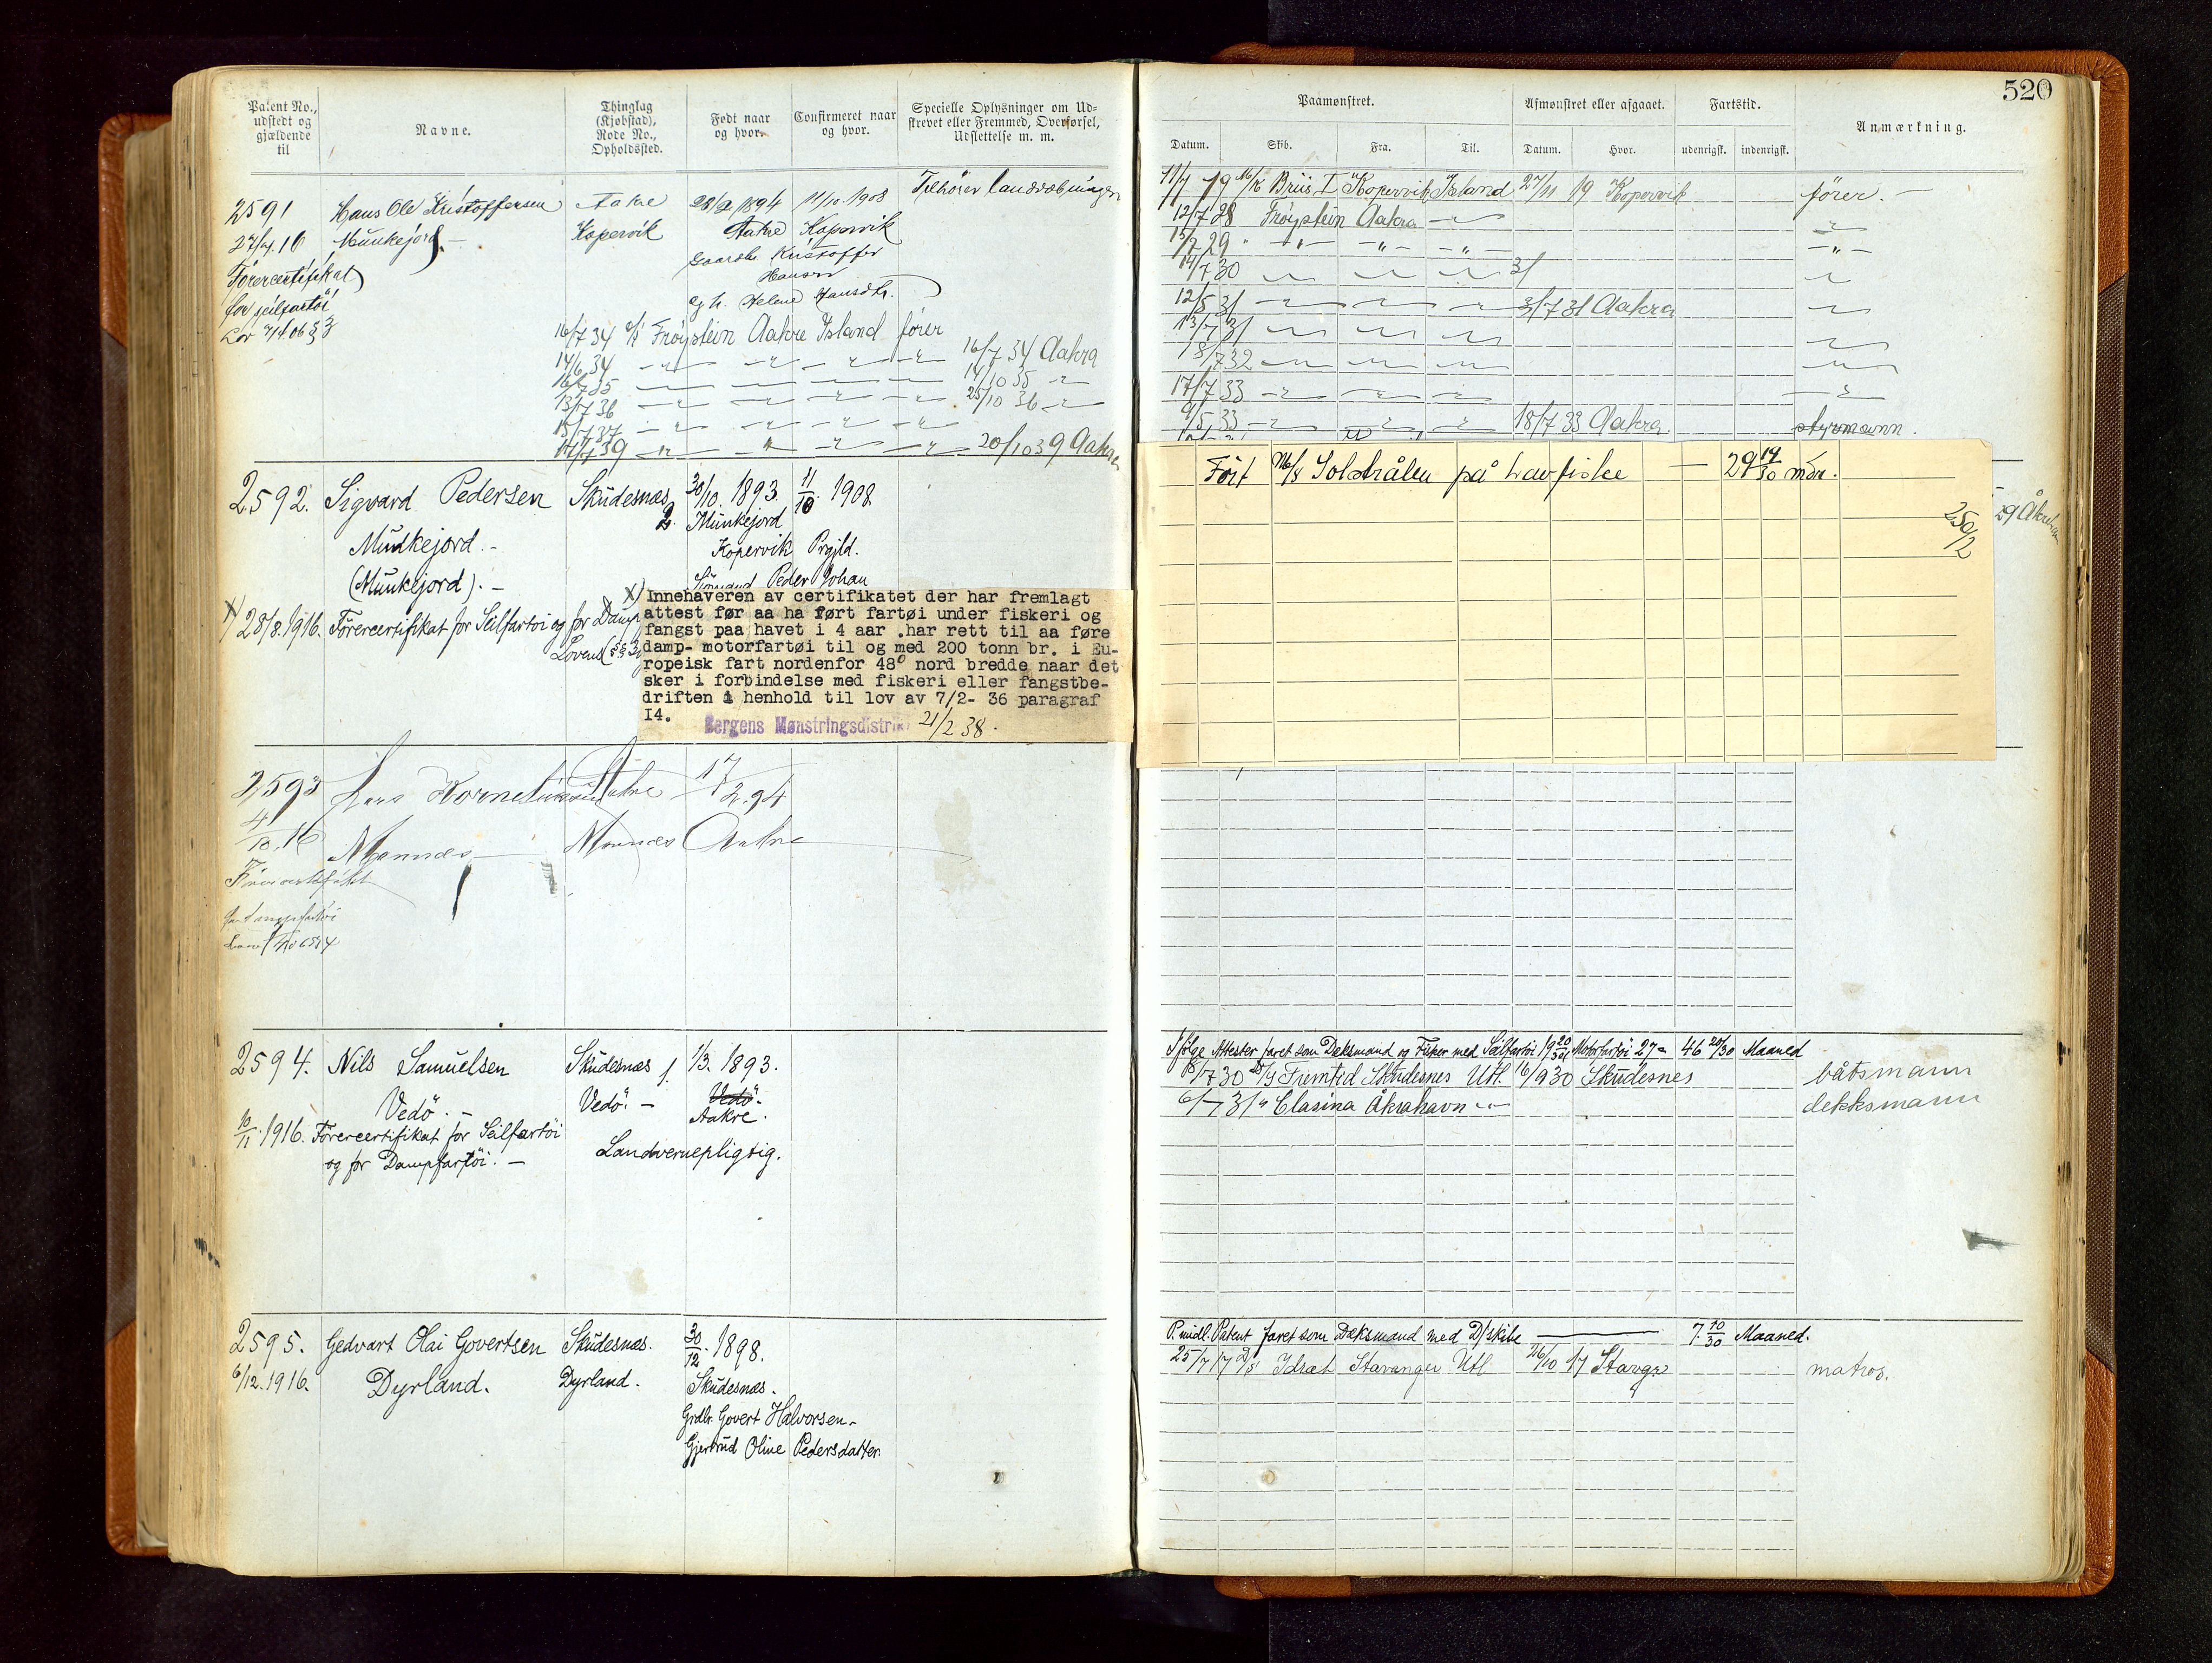 520
Patent No., udstedt og gjældende til
Navne.
Thinglag (Kjøbstad), Rode No., Opholdssted.
Født naar og hvor.
Confirmeret naar og hvor.
Specielle Oplysninger om Udskrevet eller Fremmed, Overførsel, Udslettelse m. m.
Paamønstret.
Afmønstret eller afgaaet.
Fartstid.
Anmærkning.
Datum. Skib. Fra. Til. Datum. Hvor. udenrigsk. indenrigsk.
2591 Hans Ole Kristoffersen Aakre 28/2 1894 11/10 1908 Tilhører landværnet
27/4 16 Munkejord. Kopervik Aakre Kopervik
Førercertifikat Gaardb. Kristoffer
for seilfartöi Hansen
Lov 7/4 06 § 3 og h. Helene Hansdtr.
16/7 34 Frøystein Aakre Island fører
14/6 34 16/7 34 Aakra
16/7 35 14/10 35
13/7 36 25/10 36
15/7 37
14/7 39 20/10 39 Aakra
2592. Sigvard Pedersen Skudesnæs 30/10. 1893. 11/10. 1908.
Munkejord.- 2. Munkejord
Kopervik Prgjld.
(Munkejord).- Sömand Peder Johan
x) 28/8.1916. Förercertifikat for Seilfartöi og for Damp
Lovens (§§ 3
x) Innehaveren av certifikatet der har fremlagt
attest før aa ha ført fartøi under fiskeri og
fangst paa havet i 4 aar .har rett til aa føre
damp- motorfartøi til og med 200 tonn br. i Eu-
ropeisk fart nordenfor 48° nord bredde naar det
sker i forbindelse med fiskeri eller fangstbe-
driften i henhold til lov av 7/2- 36 paragraf
I4.
Bergens Mønstringsdistrik 21/2 38.
2593 Lars Korneliussen Aakre 17/2.94
4/10.16 Mannes Mannes Aakre
Førercertifikat
2594. Nils Samuelsen Skudesnæs 1. 1/3. 1893.
Vedö.- Vedö.- Vedö.
Aakre.
10/11.1916. Förercertifikat for Seilfartöi
og for Dampfartöi.- Landvernepligtig.
2595. Gedvart Olai Govertsen Skudesnæs. 30/12. 1898.
6/12.1916. Dyrland. Dyrland. Skudesnæs.
Grdbr. Govert Halvorsen
Gjertrud Oline Pedersdatter.
11/7 19 M/k Briis I Kopervik Island 27/11 19 Kopervik fører.
12/7 28 Frøystein Aakra
15/7 29
14/7 30
12/5 31 3/7 31 Aakra
13/7 31
18/7 32
17/7 33
9/5 33 18/7 33 Aakra styrmann.
Fört M/s Solstrålen på havfiske — 29 19/30 mdr.
250/2
29 Åkreh
Ifölge Attester faret som Deksmand og Fisker med Seilfartöi 19 20/30 Motorfartöi 27 = 46 20/30 Maaned
8/7 30 Fremtid Skudesnes Utl. 16/9 30 Skudesnes båtsmann
6/7 31 " Clasina Åkrahavn dekksmann
P. midl. Patent faret som Dæksmand med D/skibe 7. 10/30 Maaned.
25/7 17 D/s Idræt Stavanger Utl 26/10 17 Stavgr matros.